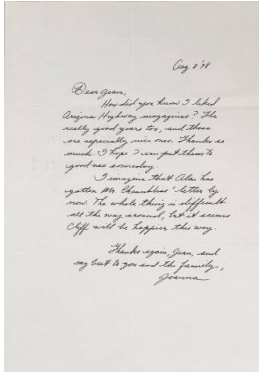 Aug. 8 '78
Dear Jean,
How did you know I liked
Arizona Highway magazines? The
really good years too, and these
are especially nice ones. Thanks so
much. I hope I can put them to
good use someday.
I imagine that Alan has
gotten Mr. Chambliss' letter by
now. The whole thing is difficult
all the way around, but it seems
Cliff will be happier this way.
Thanks again, Jean, and
my best to you and the family,
Joanna